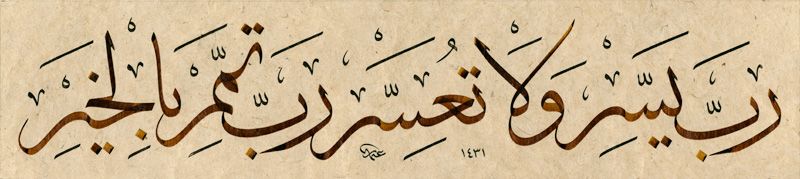 رَبِّ يَسِّرْ وَلَا تُعَسِّرْ رَبِّ تَمِّمْ بِالْخَيْرِ
١٤٣١